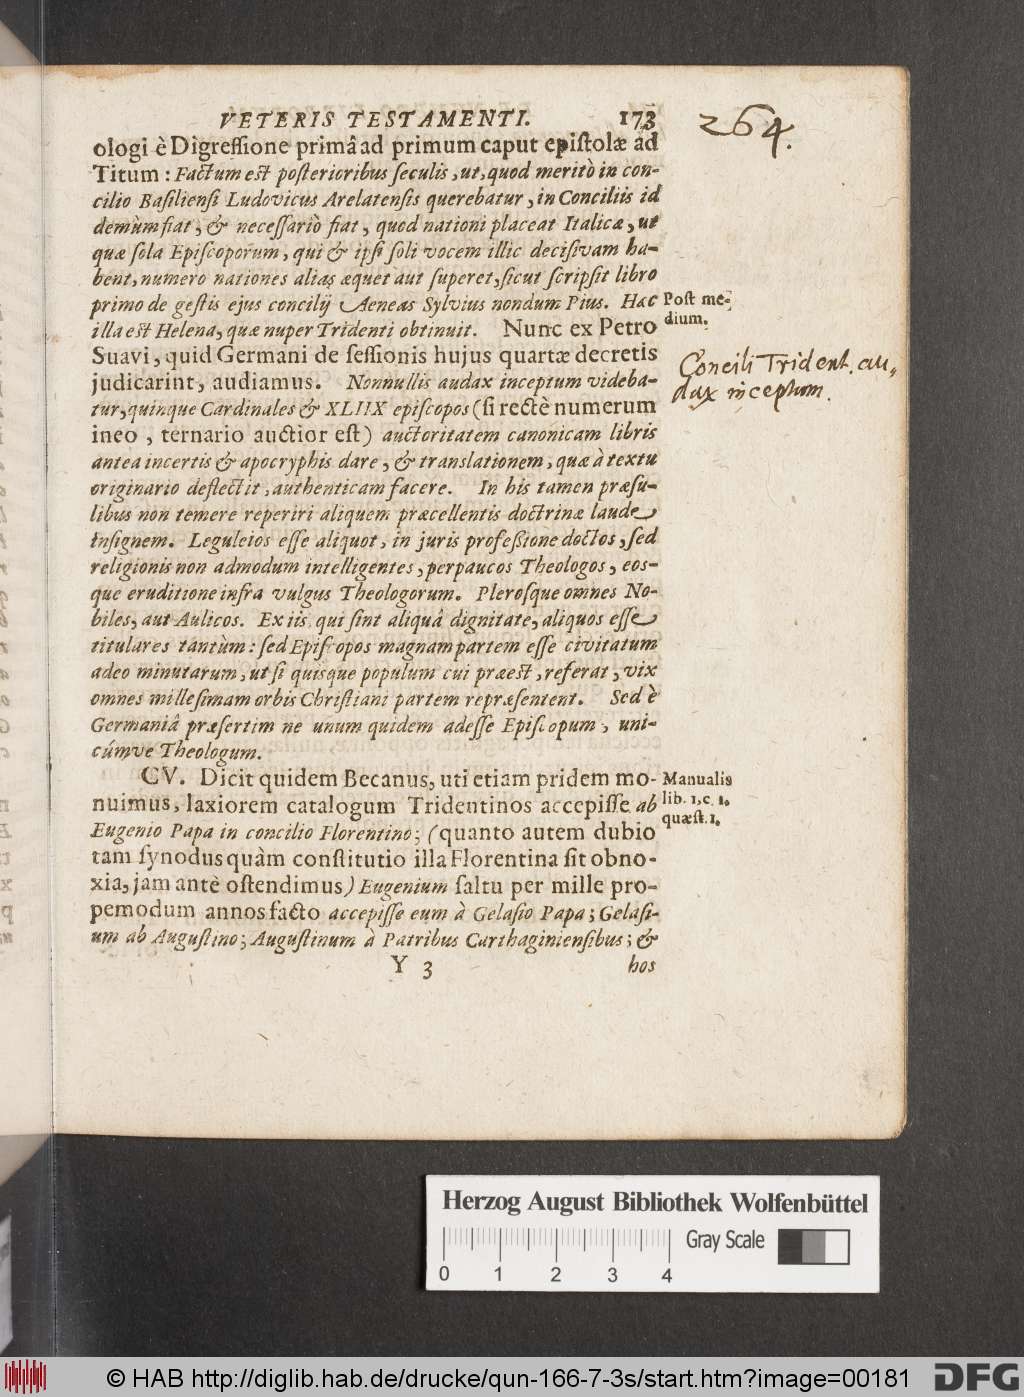 VETERIS TESTAMENTI. 173
264.
ologi è Digreſſione primâ ad primum caput epiſtolæ ad
Titum : Factum eſt poſterioribus ſeculis, ut, quod meritò in con-
cilio Baſilienſi Ludovicus Arelatenſis querebatur, in Conciliis id
demùm fiat, & neceſſariò fiat, quod nationi placeat Italicæ, ut
quæ ſola Epiſcoporum, qui & ipſi ſoli vocem illic deciſivam ha-
bent, numero nationes alias æquet aut ſuperet, ſicut ſcripſit libro
primo de geſtis ejus concilij Aeneas Sylvius nondum Pius. Hac
Poſt me-
dium.
illa eſt Helena, quæ nuper Tridenti obtinuit. Nunc ex Petro
Suavi, quid Germani de ſeſſionis hujus quartæ decretis
judicarint, audiamus. Nonnullis audax inceptum videba-
Concili Trident. au-
dax inceptum.
tur, quinque Cardinales & XLIIX epiſcopos (ſi rectè numerum
ineo, ternario auctior eſt) auctoritatem canonicam libris
antea incertis & apocryphis dare, & translationem, quæ à textu
originario deflectit, authenticam facere. In his tamen præſu-
libus non temere reperiri aliquem præcellentis doctrinæ laude
inſignem. Leguleios eſſe aliquot, in juris profeſſione doctos, ſed
religionis non admodum intelligentes, perpaucos Theologos, eos-
que eruditione infra vulgus Theologorum. Pleroſque omnes No-
biles, aut Aulicos. Ex iis, qui ſint aliquâ dignitate, aliquos eſſe
titulares tantùm : ſed Epiſcopos magnam partem eſſe civitatum
adeo minutarum, ut ſi quisque populum cui præeſt, referat, vix
omnes milleſimam orbis Chriſtiani partem repræſentent. Sed è
Germaniâ præſertim ne unum quidem adeſſe Epiſcopum, uni-
cúmve Theologum.
CV. Dicit quidem Becanus, uti etiam pridem mo-
Manualis
lib. 1, c. 1.
quæſt. 1.
nuimus, laxiorem catalogum Tridentinos accepiſſe ab
Eugenio Papa in concilio Florentino; (quanto autem dubio
tam ſynodus quàm conſtitutio illa Florentina ſit obno-
xia, jam antè oſtendimus) Eugenium ſaltu per mille pro-
pemodum annos facto accepiſſe eum à Gelaſio Papa; Gelaſi-
um ab Auguſtino; Auguſtinum à Patribus Carthaginienſibus; &
Y 3 hos
Herzog August Bibliothek Wolfenbüttel
Gray Scale
0 1 2 3 4
© HAB http://diglib.hab.de/drucke/qun-166-7-3s/start.htm?image=00181
DFG